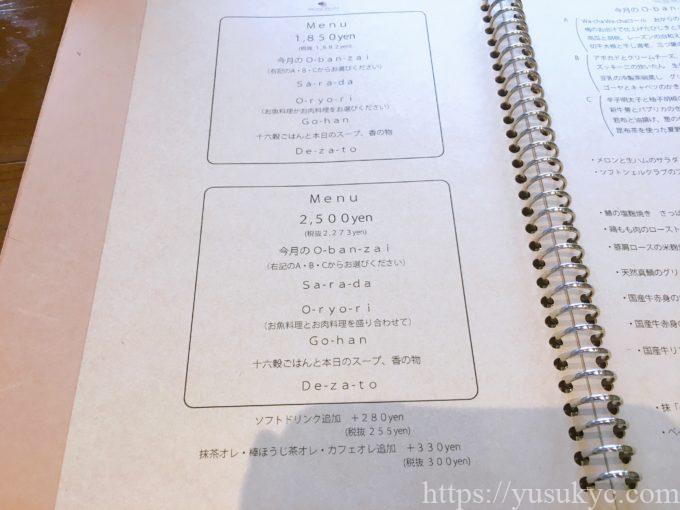 Menu
1,850yen
(税抜 1,682yen)
今月の O-ban-zai
(右記のA・B・Cからお選びください)
Sa-ra-da
O-ryo-ri
(お魚料理かお肉料理をお選びください)
Go-han
十六穀ごはんと本日のスープ、香の物
De-za-to
Menu
2,500yen
(税抜2,273yen)
今月の O-ban-zai
(右記のA・B・Cからお選びください)
Sa-ra-da
O-ryo-ri
(お魚料理とお肉料理を盛り合わせて)
Go-han
十六穀ごはんと本日のスープ、香の物
De-za-to
ソフトドリンク追加 +280yen
(税抜 255yen)
抹茶オレ・棒ほうじ茶オレ・カフェオレ追加 +330yen
(税抜 300yen)
今月の O-ban-z
A
B
アボカドとクリームチーズ、
ズッキーニの炊いたん
ゴーヤとキャベツのかき
C
辛子明太子と柚子胡椒
新牛蒡とパプリカの
昆布と油揚げ、
昆布茶を使った夏野
・メロンと生ハムのサラダ
・ソフトシェルクラブの
・鯖の塩麹焼き さっぱ
・鶏もも肉のロースト
・豚肩ロースの米麹
・天然真鯛のグリ
・国産牛赤身の
・国産牛赤身の
・国産牛リ
https://yusukyc.com/